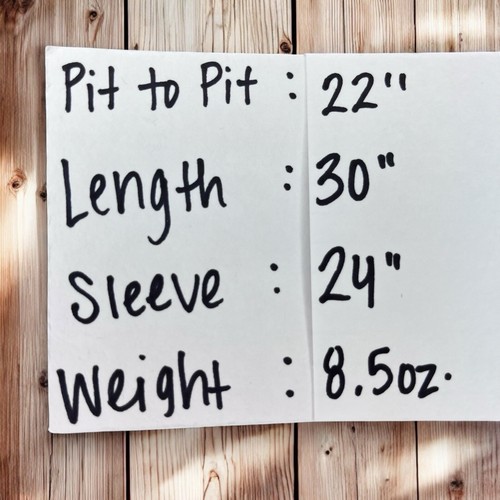 Pit to Pit : 22"
Length : 30"
Sleeve : 24"
Weight : 8.5oz.